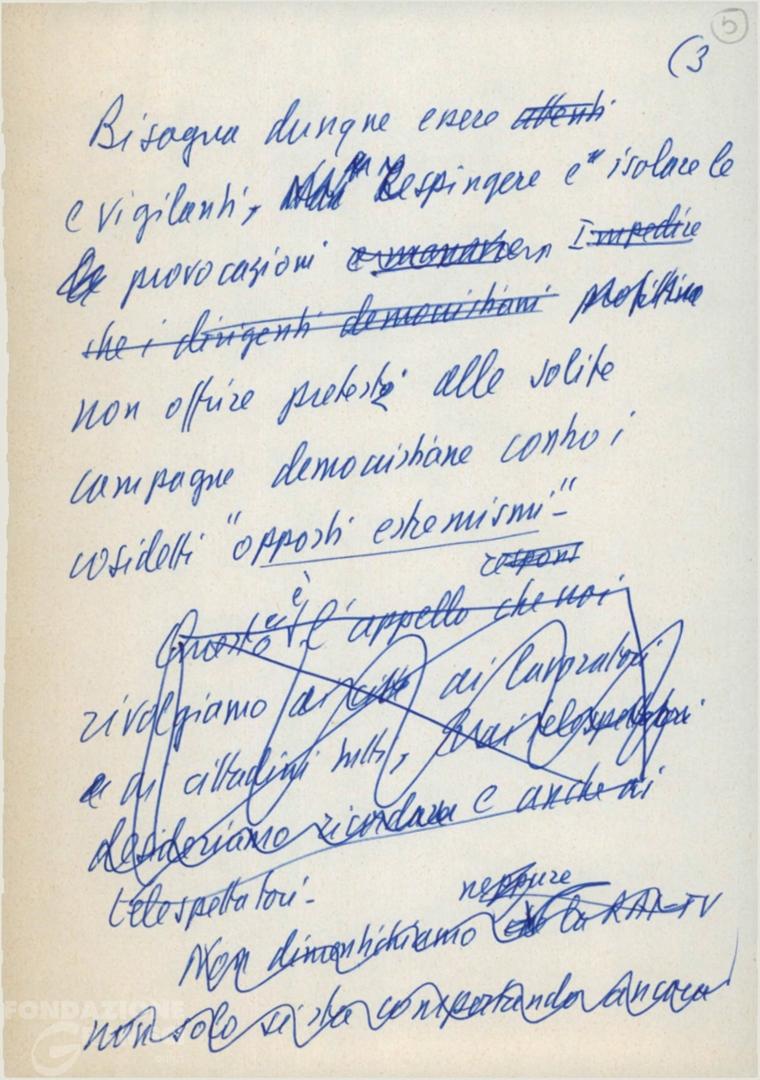 5
(3
Bisogna dunque essere attenti
e vigilanti, Respingere e isolare le
provocazioni Impedire
che i dirigenti democristiani
non offrire pretesti alle solite
campagne democristiane contro i
cosidetti "opposti estremismi"-
respons
è
Questo l'appello che noi
rivolgiamo ai citt ai lavoratori
e ai cittadini tutti, telespettatori
desideriamo ricordare e anche ai
telespettatori-
neppure
Non dimentichiamo la RAI-TV
non solo si sta comportando ancora
FONDAZIONE